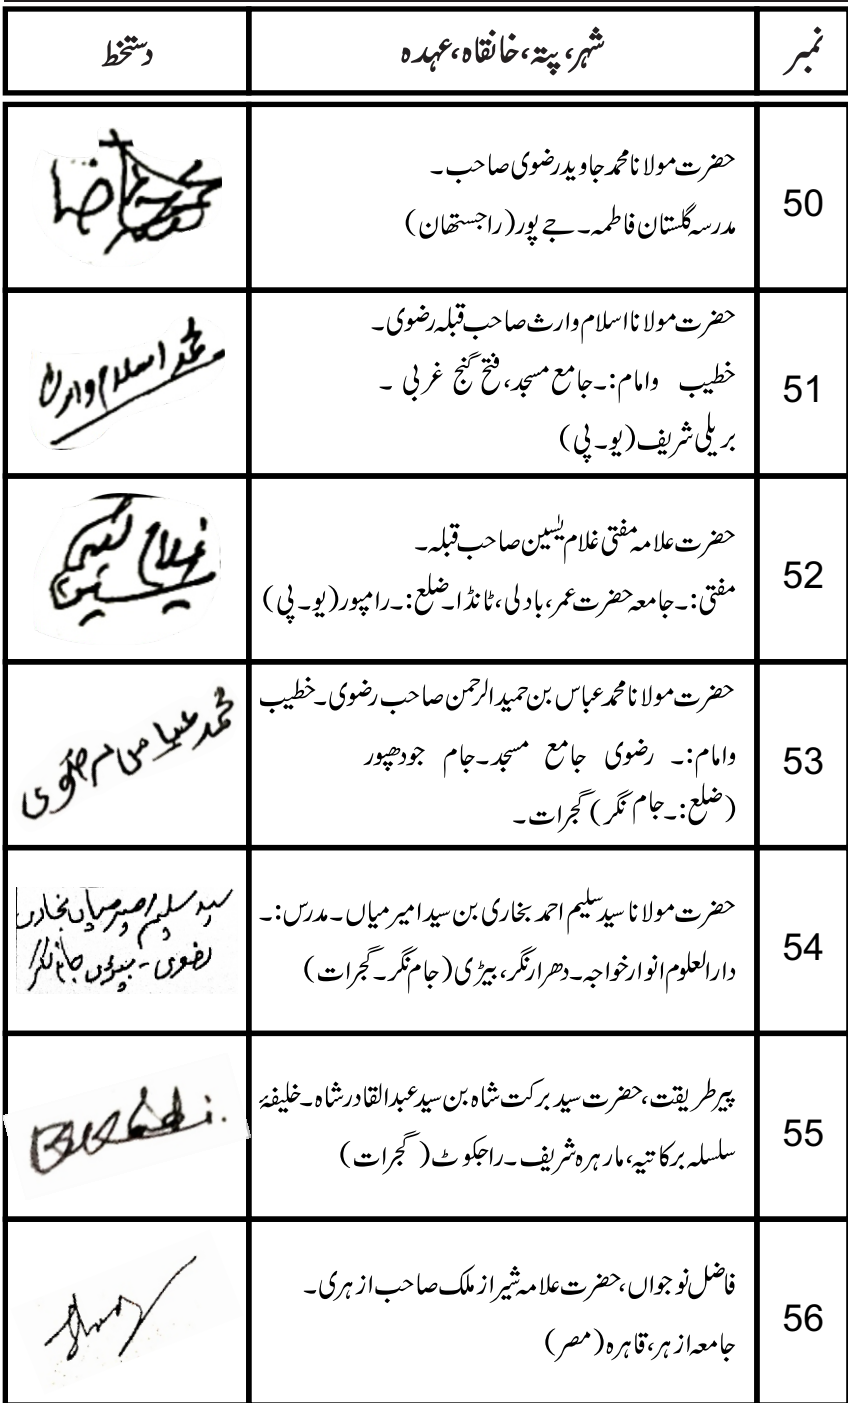 نمبر شہر، پتہ، خانقاہ، عہدہ دستخط
50
حضرت مولانا محمد جاوید رضوی صاحب۔
مدرسہ گلستان فاطمہ۔ جے پور (راجستھان)
51
حضرت مولانا اسلام وارث صاحب قبلہ رضوی۔
خطیب وامام:۔ جامع مسجد، فتح گنج غربی ۔
بریلی شریف (یو۔ پی)
محمد اسلام وارث
52
حضرت علامہ مفتی غلام یٰسین صاحب قبلہ۔
مفتی:۔ جامعہ حضرت عمر، بادلی، ٹانڈا۔ ضلع:۔ رامپور (یو۔ پی)
غلام یٰسین
53
حضرت مولانا محمد عباس بن حمید الرحمن صاحب رضوی۔ خطیب
وامام:۔ رضوی جامع مسجد۔ جام جودھپور
(ضلع:۔ جام نگر) گجرات۔
محمد عباس رضوی
54
حضرت مولانا سید سلیم احمد بخاری بن سید امیر میاں۔ مدرس:۔
دارالعلوم انوار خواجہ۔ دھرارنگر، بیڑی (جام نگر۔ گجرات)
سید سلیم امیر میاں بخاری
رضوی - بیڑی جام نگر
55
پیر طریقت، حضرت سید برکت شاہ بن سید عبدالقادر شاہ۔ خلیفۂ
سلسلہ برکاتیہ، مارہرہ شریف۔ راجکوٹ (گجرات)
56
فاضل نوجواں، حضرت علامہ شیراز ملک صاحب ازہری۔
جامعہ ازہر، قاہرہ (مصر)